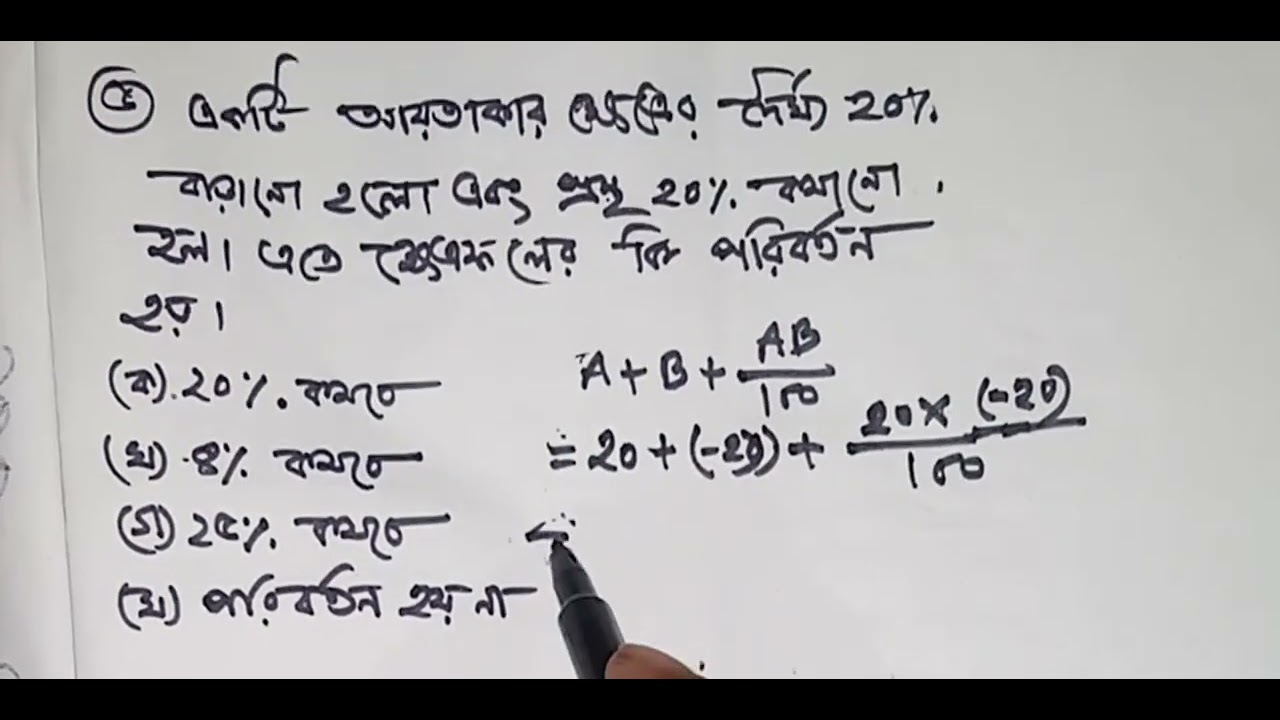 ৫ একটি আয়তাকার ক্ষেত্রের দৈর্ঘ্য ২০%
বাড়ানো হলো এবং প্রস্থ ২০% কমানো
হল। এতে ক্ষেত্রফলের কি পরিবর্তন
হয়।
(ক) ২০% কমবে
(খ) ৪% কমবে
(গ) ২৫% কমবে
(ঘ) পরিবর্তন হয় না
A + B + AB/100
= 20 + (-20) + 20 × (-20)/100